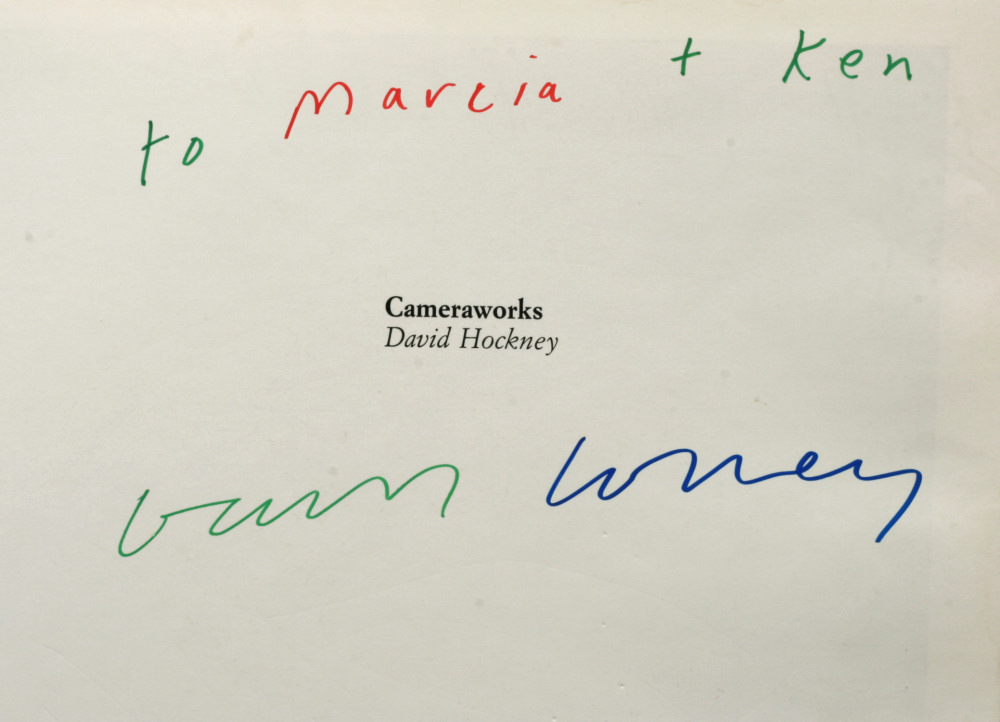 to Marcia + Ken
Cameraworks
David Hockney